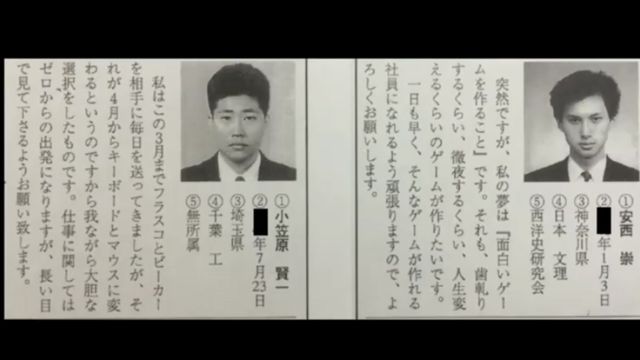 ①安西 崇
②年1月3日
③神奈川県
④日本 文理
⑤西洋史研究会
突然ですが、私の夢は『面白いゲー
ムを作ること』です。それも、歯軋り
するくらい、徹夜するくらい、人生変
えるくらいのゲームが作りたいです。
一日も早く、そんなゲームが作れる
社員になれるよう頑張りますので、よ
ろしくお願いします。
①小笠原 賢一
②年7月23日
③埼玉県
④千葉 工
⑤無所属
私はこの3月までフラスコとビーカー
を相手に毎日を送ってきましたが、そ
れが4月からキーボードとマウスに変
わるというのですから我ながら大胆な
選択をしたものです。仕事に関しては
ゼロからの出発になりますが、長い目
で見て下さるようお願い致します。